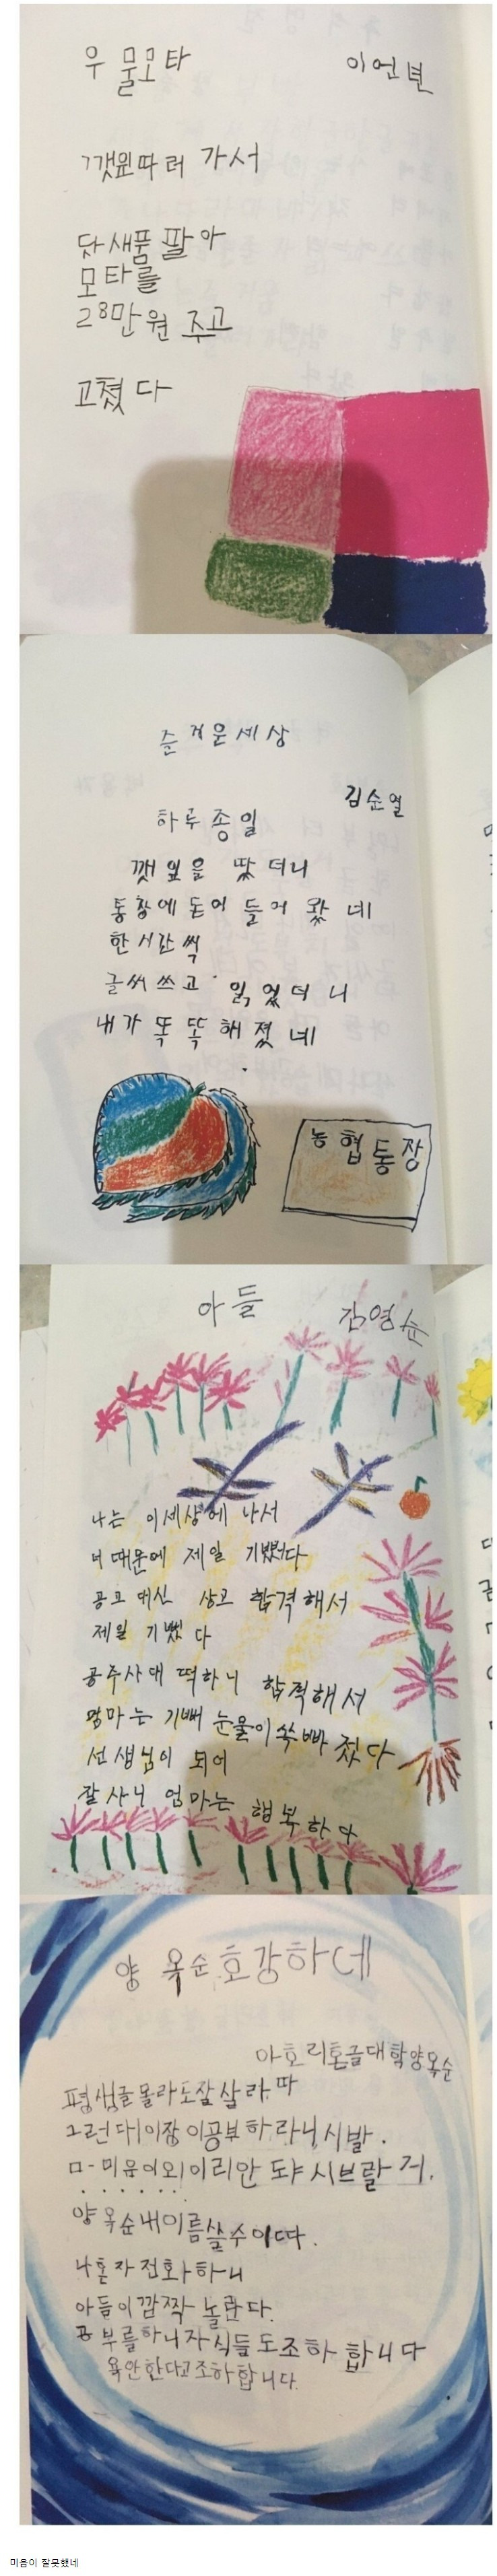 우 물모타
이언년
깻잎따러 가서
닷새품 팔아
모타를
28만원 주고
고쳤다
즐거운세상
김순열
하루종일
깻잎을 땄더니
통장에 돈이 들어 왔네
한시간씩
글씨쓰고 읽었더니
내가 똑똑해졌네
농협통장
아들
김영순
나는 이세상에 나서
너때문에 제일 기뻤다
공고 대신 상고 합격해서
제일 기뻤다
공주사대 떡하니 합격해서
엄마는 기뻐 눈물이 쏙빠졌다
선생님이 되어
잘사니 엄마는 행복하다
양 옥순호강하네
아호리혼글대학양옥순
평생글몰라도잘살라따
그런대이장이공부하라니시발.
ㅁ-미음이외이리안도야시브랄거.
양옥순내이름쓸수이따.
나혼자전화하니
아들이깜짝놀란다.
공부를하니자식들도조하합니다
욕안한다고조하합니다.
미음이 잘못했네